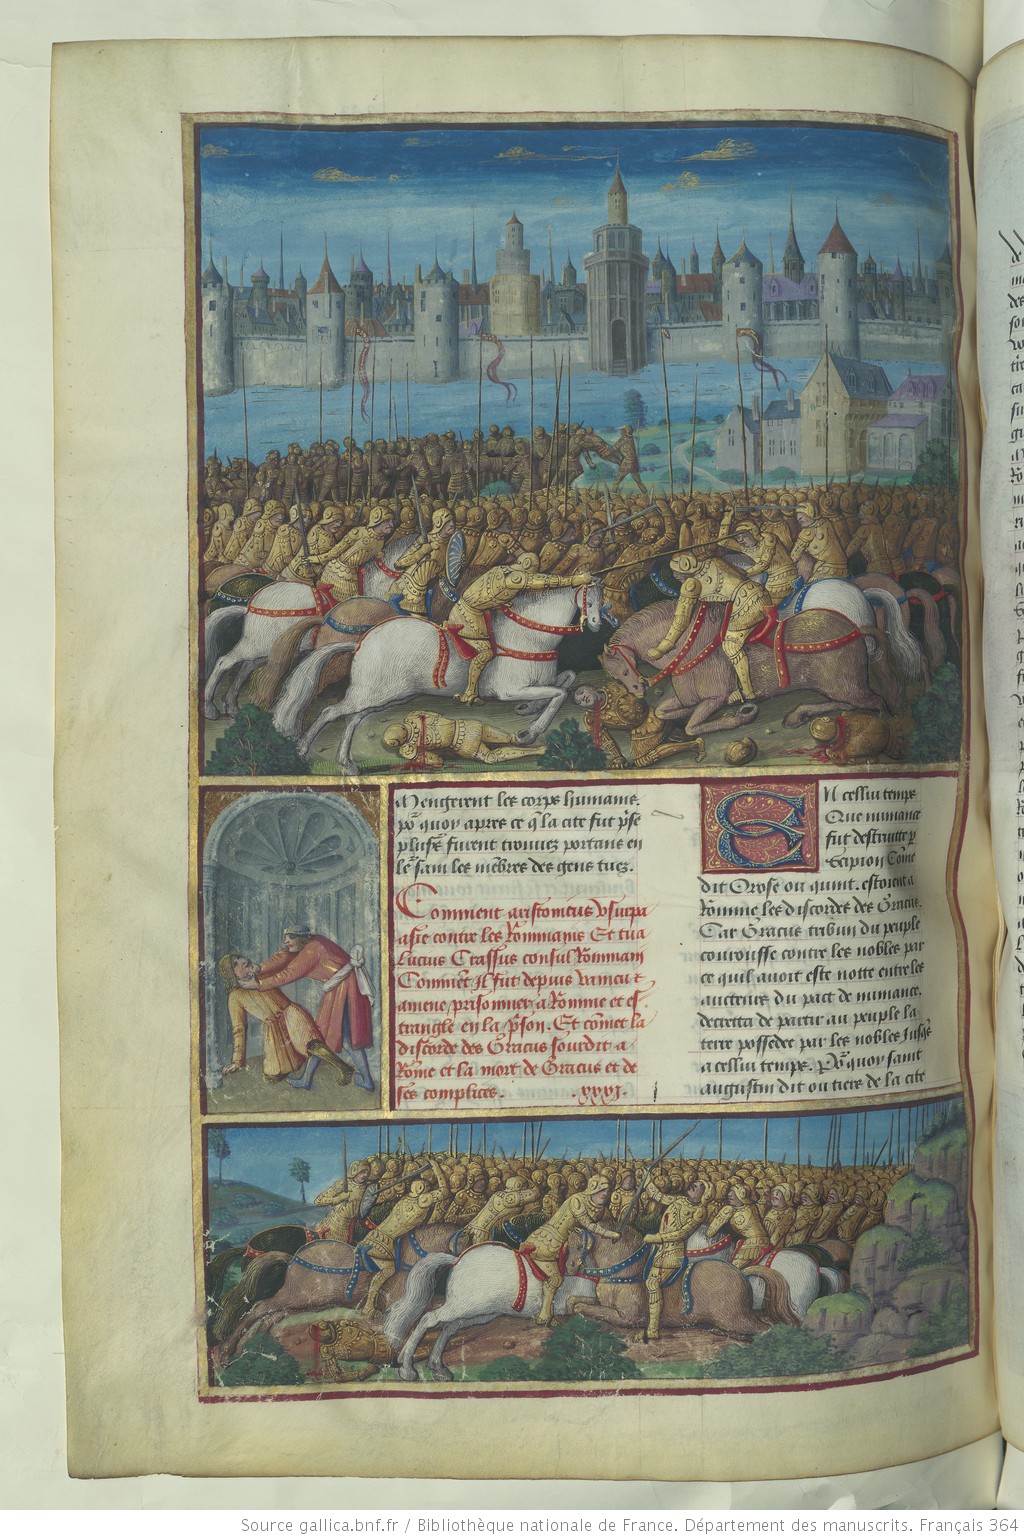 Mengerent les corps humains.
po quoy apres ce q̄ la cite fut p̄se
plus̄ furent trouuez portans en
le sain les mēbres des gens tuez.
Comment aristonicus vsurpa
asie contre les Rommains Et tua
Lucius Crassus consul Rommain
Commēt Il fut depuis vaincu et
amene prisonnier a Romme et es
trangle en la p̄son. Et cōmēt la
discorde des Gracus sourdit a
Rōme et la mort de Gracus et de
ses complices. .xxxi.
EN cellui temps
Que numance
fut destruitte p
Scipion Cōme
dit Orose ou quint. estoient a
Romme les discordes des Gracus.
Car Gracus tribun du peuple
courousse contre les nobles par
ce quil auoit este notte entre les
aucteurs du pact de numance.
decretta de partir au peuple la
terre possedee par les nobles Jusqs
a cellui temps. Po quoy saint
augustin dit ou tiers de la cite
Source gallica.bnf.fr / Bibliothèque nationale de France. Département des manuscrits. Français 364